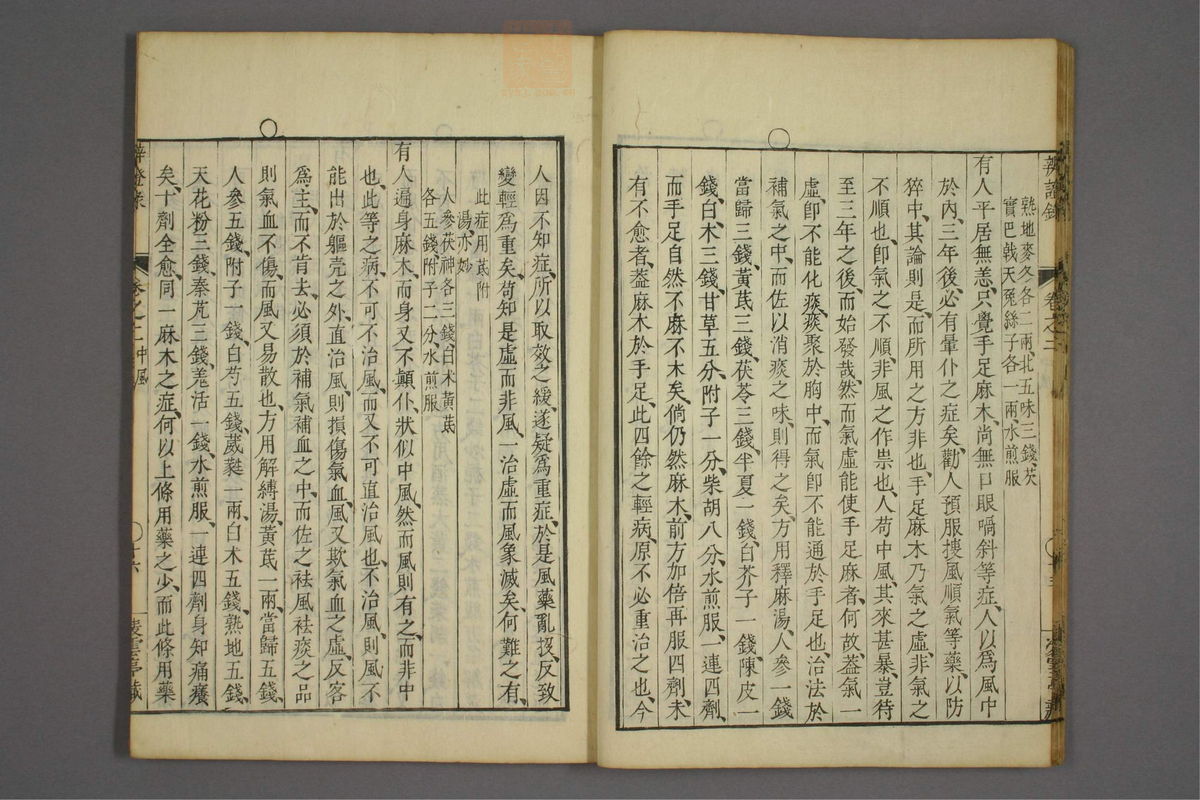 辨證錄 卷之二
熟地麥冬各二兩、北五味三錢、茨
實巴戟天兔絲子各一兩、水煎服
有人平居無恙、只覺手足麻木、尚無口眼喎斜等症、人以爲風中
於內、三年後、必有暈仆之症矣、勸人預服搜風順氣等藥、以防
猝中、其論則是、而所用之方非也、手足麻木乃氣之虛、非氣之
不順也、卽氣之不順、非風之作祟也、人苟中風、其來甚暴、豈待
至三年之後、而始發哉、然而氣虛能使手足麻者、何故、葢氣一
虛、卽不能化痰、痰聚於胸中、而氣卽不能通於手足也、治法於
補氣之中、而佐以消痰之味、則得之矣、方用釋麻湯、人參一錢
當歸三錢、黃芪三錢、茯苓三錢、半夏一錢、白芥子一錢、陳皮一
錢、白术三錢、甘草五分、附子一分、柴胡八分、水煎服、一連四劑、
而手足自然不麻不木矣、倘仍然麻木、前方加倍再服四劑、未
有不愈者、葢麻木於手足、此四餘之輕病、原不必重治之也、今
人因不知症、所以取效之緩、遂疑爲重症、於是風藥亂投、反致
變輕爲重矣、苟知是虛而非風、一治虛而風象滅矣、何難之有、
此症用芪附
湯亦妙
人參茯神各三錢、白术黃芪
各五錢、附子二分、水煎服
有人遍身麻木、而身又不顛仆、狀似中風、然而風則有之、而非中
也、此等之病、不可不治風、而又不可直治風也、不治風、則風不
能出於軀壳之外、直治風則損傷氣血、風又欺氣血之虛、反客
爲主、而不肯去、必須於補氣補血之中、而佐之祛風祛痰之品
則氣血不傷、而風又易散也、方用解縛湯、黃芪一兩、當歸五錢、
人參五錢、附子一錢、白芍五錢、葳蕤一兩、白术五錢、熟地五錢、
天花粉三錢、秦艽三錢、羗活一錢、水煎服、一連四劑、身知痛癢
矣、十劑全愈、同一麻木之症、何以上條用藥之少、而此條用藥
卷之二中風 十六